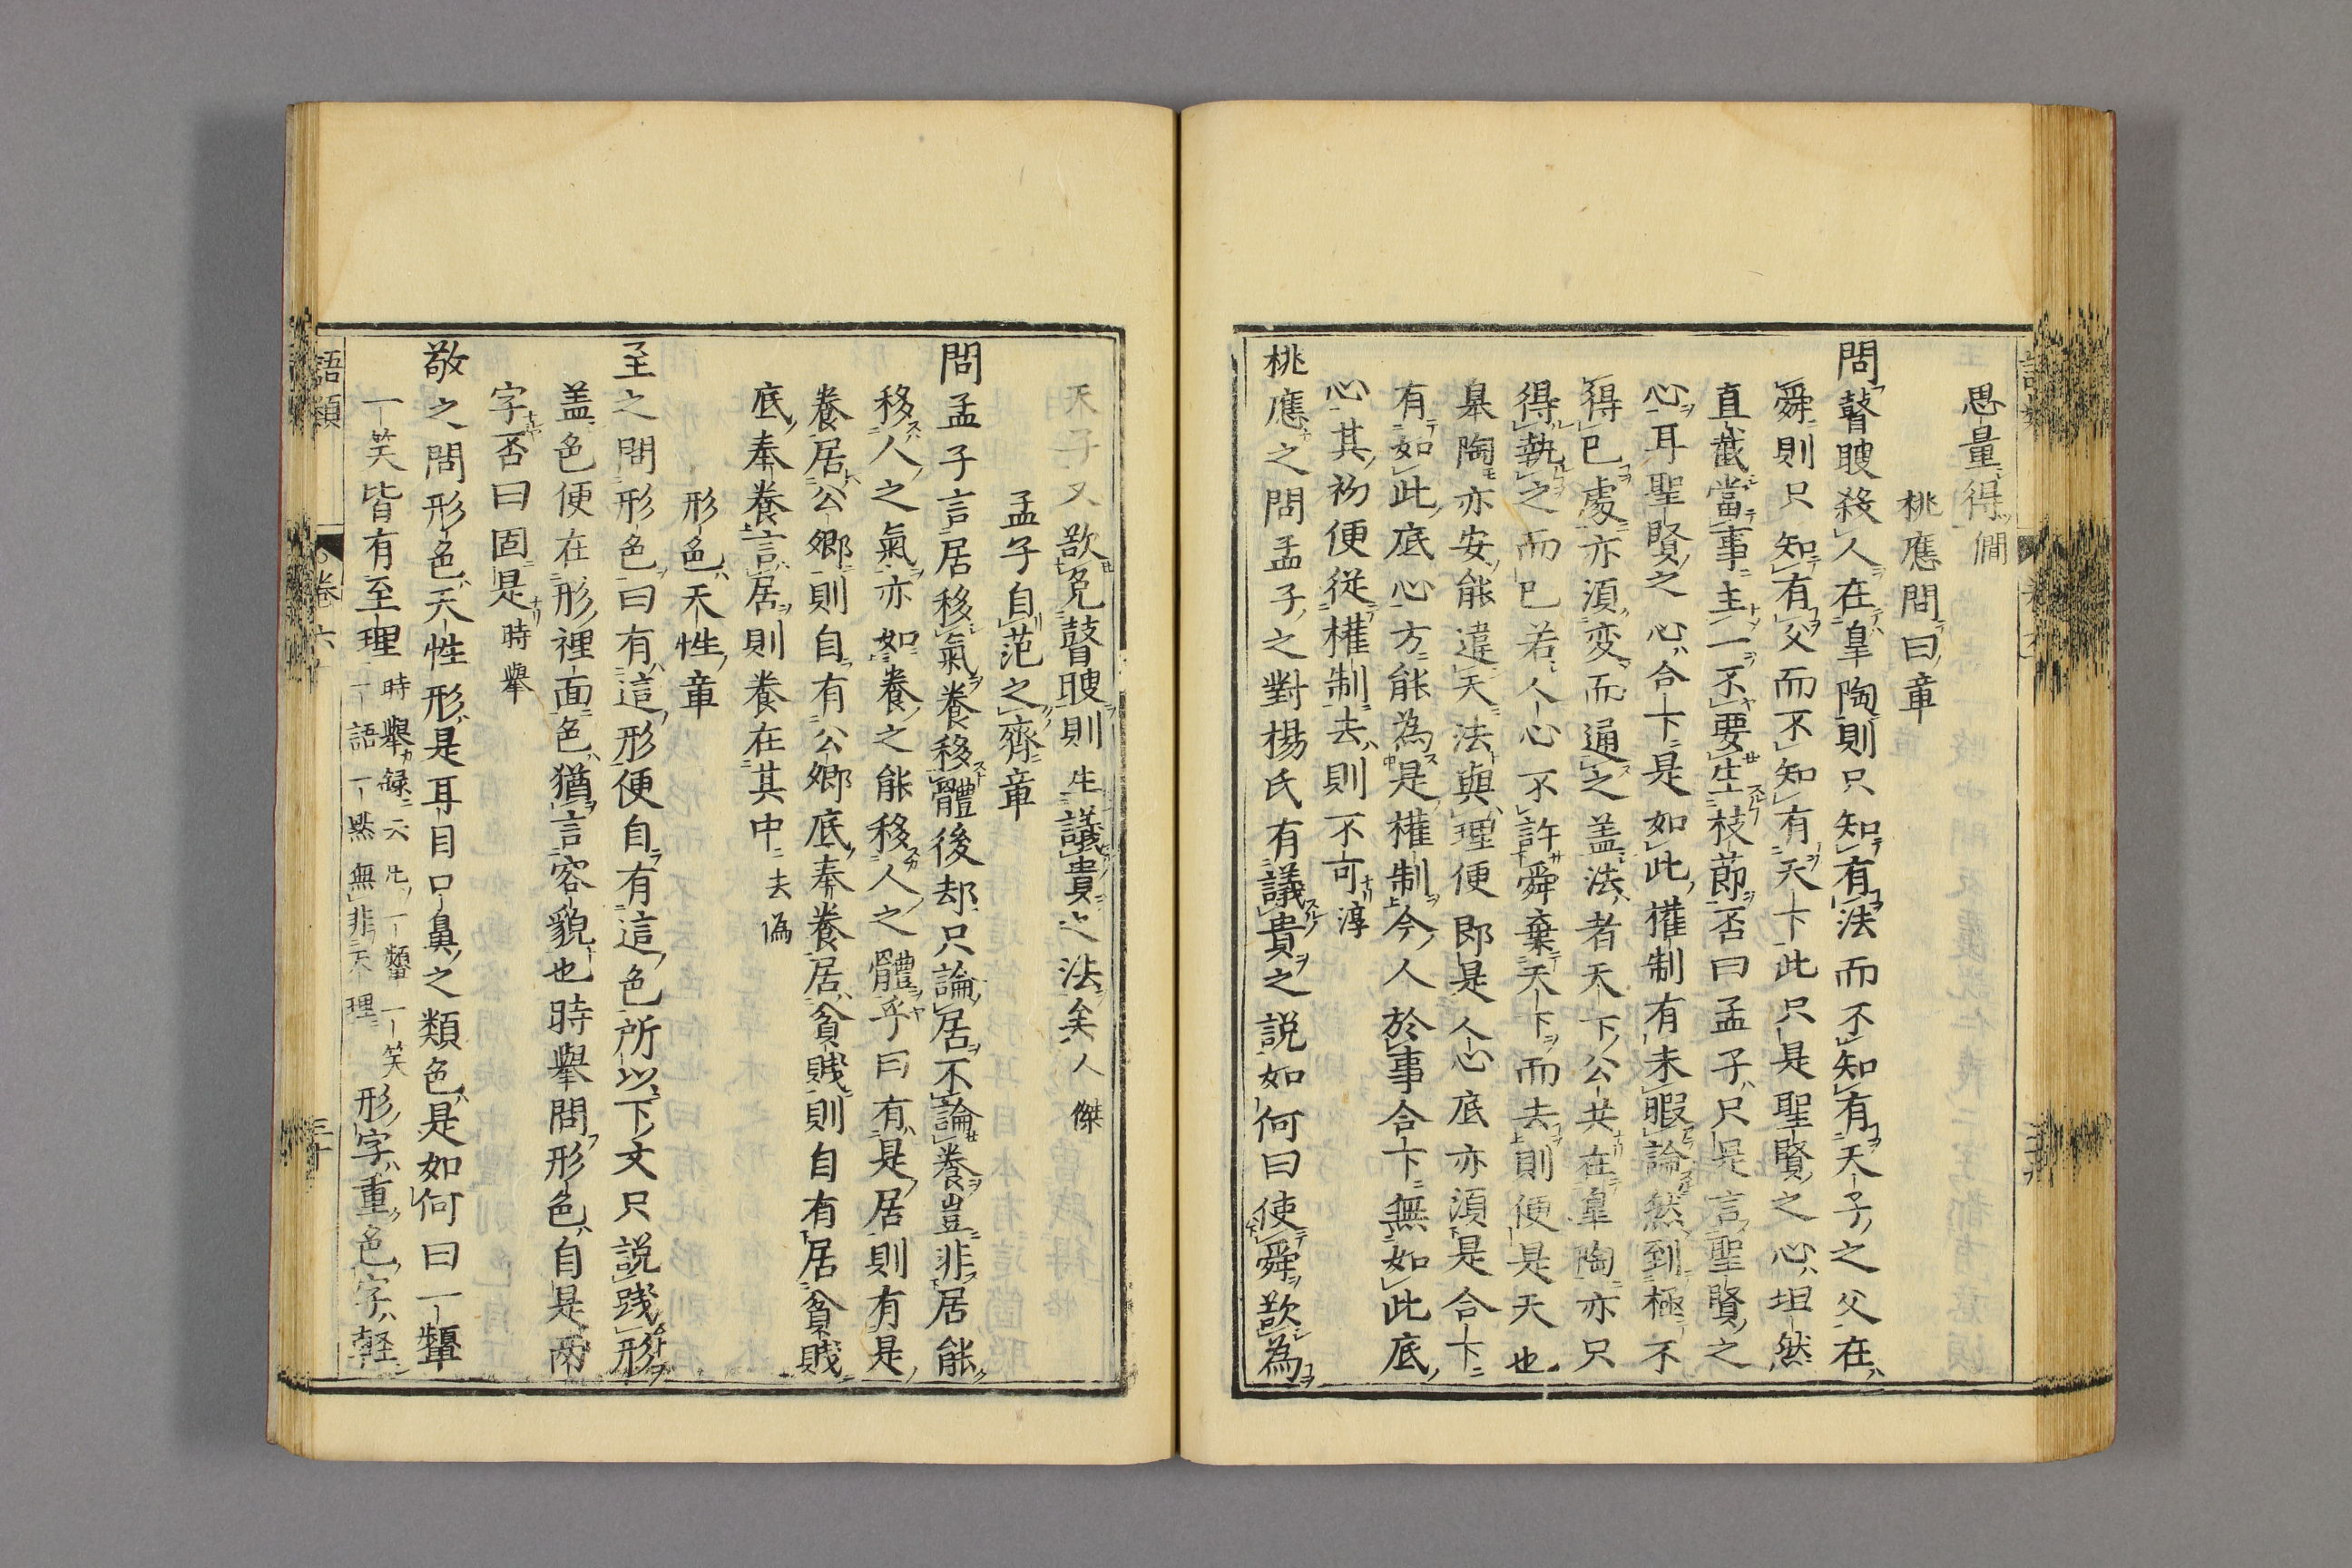 思量得 僩
桃應問曰章
問瞽瞍殺人在臯陶則只知有法而不知有天子之父在
舜則只知有父而不知有天下此只是聖賢之心坦然
直截當事主一不要生枝節否曰孟子只是言聖賢之
心耳聖賢之心合下是如此權制有未暇論然到極不
得已處亦須変而通之盖法者天下公共在臯陶亦只
得執之而已若人心不許舜棄天下而去則便是天也
臯陶亦安能違天法與理便即是人心底亦須是合下
有如此底心方能為是權制今人於事合下無如此底
心其初便從權制去則不可 淳
桃應之問孟子之對楊氏有議貴之説如何曰使舜欲為
天子又欲免瞽瞍則生議貴之法矣 人傑
孟子自范之齊章
問孟子言居移氣養移體後却只論居不論養豈非居能
移人之氣亦如養之能移人之體乎曰有是居則有是
養居公卿則自有公卿底奉養居貧賤則自有居貧賤
底奉養言居則養在其中 去偽
形色天性章
至之問形色曰有這形便自有這色所以下文只説踐形
盖色便在形裡面色猶言容貌也時舉問形色自是兩
字否曰固是 時舉
敬之問形色天性形是耳目口鼻之類色是如何曰一顰
一笑皆有至理 時舉録云凡一顰一笑一語一默無非天理 形字重色字軽
語類 卷六十 三十